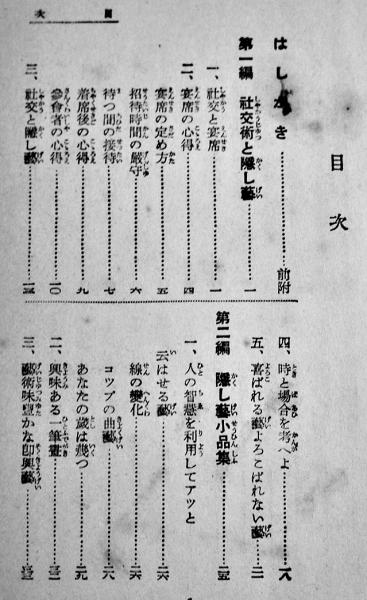 目次
目次
はしがき……前附
第一編 社交術と隠し藝……一
一、社交と宴席……一
二、宴席の心得……四
宴席の定め方……五
招待時間の厳守……六
待つ間の接待……七
着席後の心得……九
參會者の心得……一〇
三、社交と隠し藝……一三
四、時と場合を考へよ……一八
五、喜ばれる藝よろこばれない藝……二一
第二編 隠し藝小品集……二五
一、人の智慧を利用してアッと
云はせる藝……二六
線の變化……二六
コップの曲藝……二八
あなたの歳は幾つ……二九
二、興味ある一筆畫……三一
三、藝術味豊かな卽興藝……三三